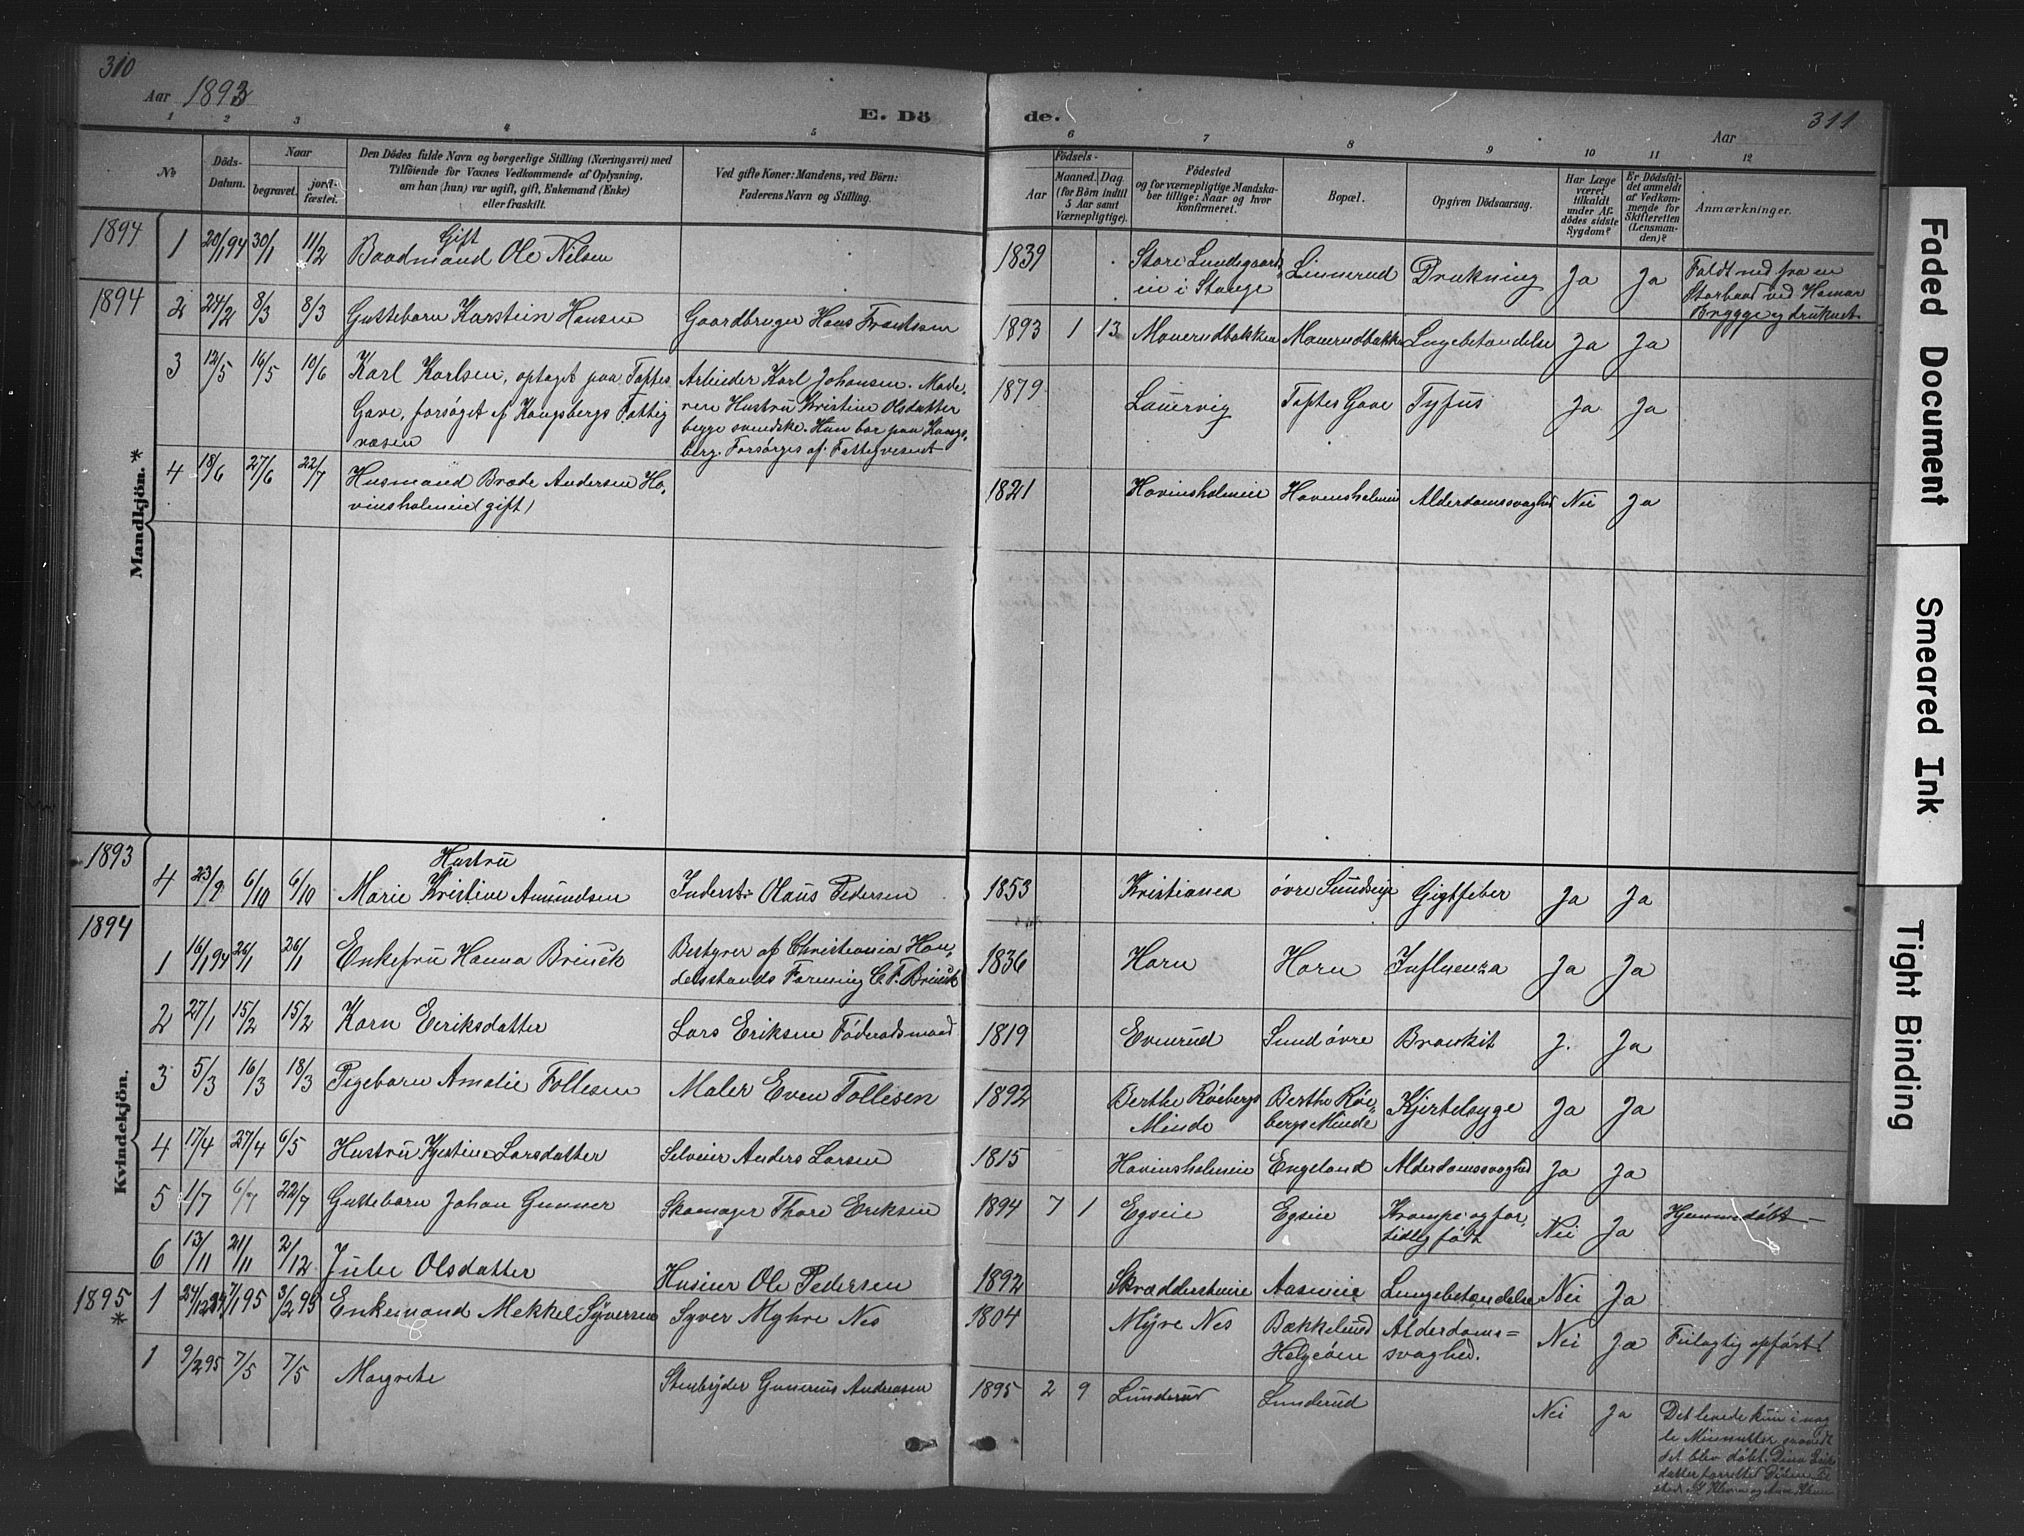 310
Aar 1893
E. Dö
de.
Aar
311
1 2 3 4 5 6 7 8 9 10 11 12
No
Döds-Datum.
Naar
begravet.
jord-fæstet.
Den Dödes fulde Navn og borgerlige Stilling (Næringsvei) med
Tilföiende for Voxnes Vedkommende af Oplysning,
om han (hun) var ugift, gift, Enkemand (Enke)
eller fraskilt.
Ved gifte Koner: Mandens, ved Börn:
Faderens Navn og Stilling.
Födsels-
Aar
Maaned. Dag
(for Börn indtil
5 Aar samt
Værnepligtige).
Födested
og for værnepligtige Mandska-
ber tillige: Naar og hvor
konfirmeret.
Bopæl.
Opgiven Dödsaarsag.
Har Læge
været
tilkaldt
under Af-
dödes sidste
Sygdom?
Er Dödsfal-
det anmeldt
af Vedkom-
mende for
Skifteretten
(Lensman-
den)?
Anmærkninger.
Mandkjön. *
1894
1 20/1 94 30/1 11/2 Gift
Baadmand Ole Nilsen
1839 Store Lundsgaard
eie i Stange
Linnerud Drukning Ja Ja Faldt ned fra en
Storbaad ved Hamar
Brygge og druknet
1894
2 24/2 8/3 8/3 Guttebarn Karstein Hansen Gaardbruger Hans Frantssen 1893 1 13 Maurudbakken Maurudbakken Lungebetændelse Ja Ja
3 12/5 16/5 10/6 Karl Karlsen, optaget paa Toftes
Gave, forsøget af Kongsbergs Fattig
væsen
Arbeider Karl Johansen. Mode
ren Hustru Kristine Olsdatter
begge svendske. Hun bor paa Kongs,
berg. Forsørges af Fattigvesenet
1879 Laurvig Toftes Gave Tyfus Ja Ja
4 18/6 27/6 22/7 Husmand Brede Andersen Ho,
vinsholmeie (gift)
1821 Hovinsholmeie Hovinsholmeie Alderdomssvaghed Nei Ja
Kvindekjön.
1893
4 23/9 6/10 6/10 Hustru
Marie Kristine Amundsen Inderst: Olaus Pedersen 1853 Kristiania øvre Sundseie Gigtfeber Ja Ja
1894
1 16/1 94 26/1 26/1 Enkefru Hanna Brinck Bestyrer af Christiania Han,
delsstands Forening C. F. Brinck
1836 Horn Horn Influenza Ja Ja
2 27/1 15/2 15/2 Karn Eeriksdatter Lars Eriksen Føderadsmand 1819 Evenrud Sund øvre Bronkit J. Ja
3 5/3 16/3 18/3 Pigebarn Amalie Tollesen Maler Even Tollesen 1892 Berthe Røebergs
Minde
Berthe Røe=
bergs Minde
Kjertelsyge Ja Ja
4 17/4 27/4 6/5 Hustru Kjestine Larsdatter Selveier Anders Larsen 1815 Hovinsholmeie Engeland Alderdomssvaghed Ja Ja
5 1/7 6/7 22/7 Guttebarn Johan Gunner Skomager Thore Eriksen 1894 7 1 Egseie Egseie Krampe og for
tidlig født
Nei Ja Hjemmedøbt
6 13/11 21/11 2/12 Julie Olsdatter Huseier Ole Pedersen 1892 Skrædderstueie Aaseneie Lungebetændelse Nei Ja
1895
*
1 24/12 94 7/1 95 3/2 95 Enkemand Mekkel Syversen Syver Myhre Nes 1804 Myre Nes Bækkelund
Helgeøen
Alderdoms=
svaghed.
Nei Ja Feilagtig opført
1 9/2 95 7/5 7/5 Margrete Stenbryder Gunerius Andreasen 1895 2 9 Lunderud Lunderud Nei Ja Det levede kun i nog
le Minnutter saavidt
det blev døbt.
Faded Document
Smeared Ink
Tight Binding